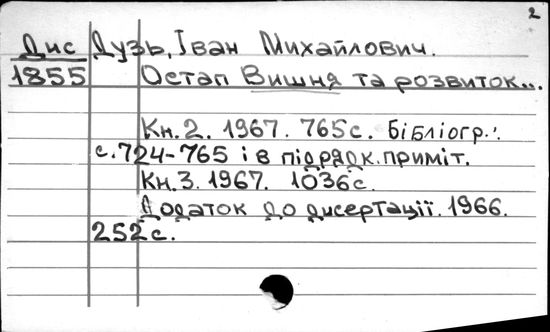 2
Дис Дузь, Іван Михайлович.
1855 Остап Вишня та розвиток...
Кн. 2. 1967. 765с. Бібліогр.:
с. 724-765 і в підрядк. приміт.
Кн. 3. 1967. 1036с.
Додаток до дисертації. 1966.
252с.